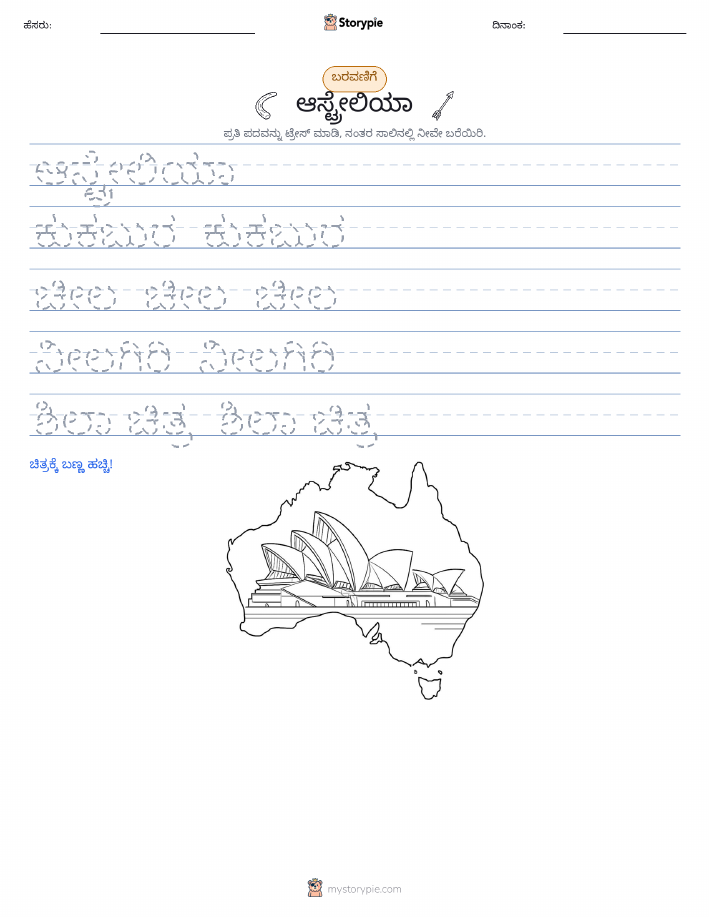 ಹೆಸರು:
Storypie
ದಿನಾಂಕ:
ಬರವಣಿಗೆ
ಆಸ್ಟ್ರೇಲಿಯಾ
ಪ್ರತಿ ಪದವನ್ನು ಟ್ರೇಸ್ ಮಾಡಿ, ನಂತರ ಸಾಲಿನಲ್ಲಿ ನೀವೇ ಬರೆಯಿರಿ.
ಆಸ್ಟ್ರೇಲಿಯಾ
ಕುಕಬುರ ಕುಕಬುರ
ಚೀಲ ಚೀಲ ಚೀಲ
ನೀಲಗಿರಿ ನೀಲಗಿರಿ
ಶಿಲಾ ಚಿತ್ರ ಶಿಲಾ ಚಿತ್ರ
ಚಿತ್ರಕ್ಕೆ ಬಣ್ಣ ಹಚ್ಚಿ!
mystorypie.com